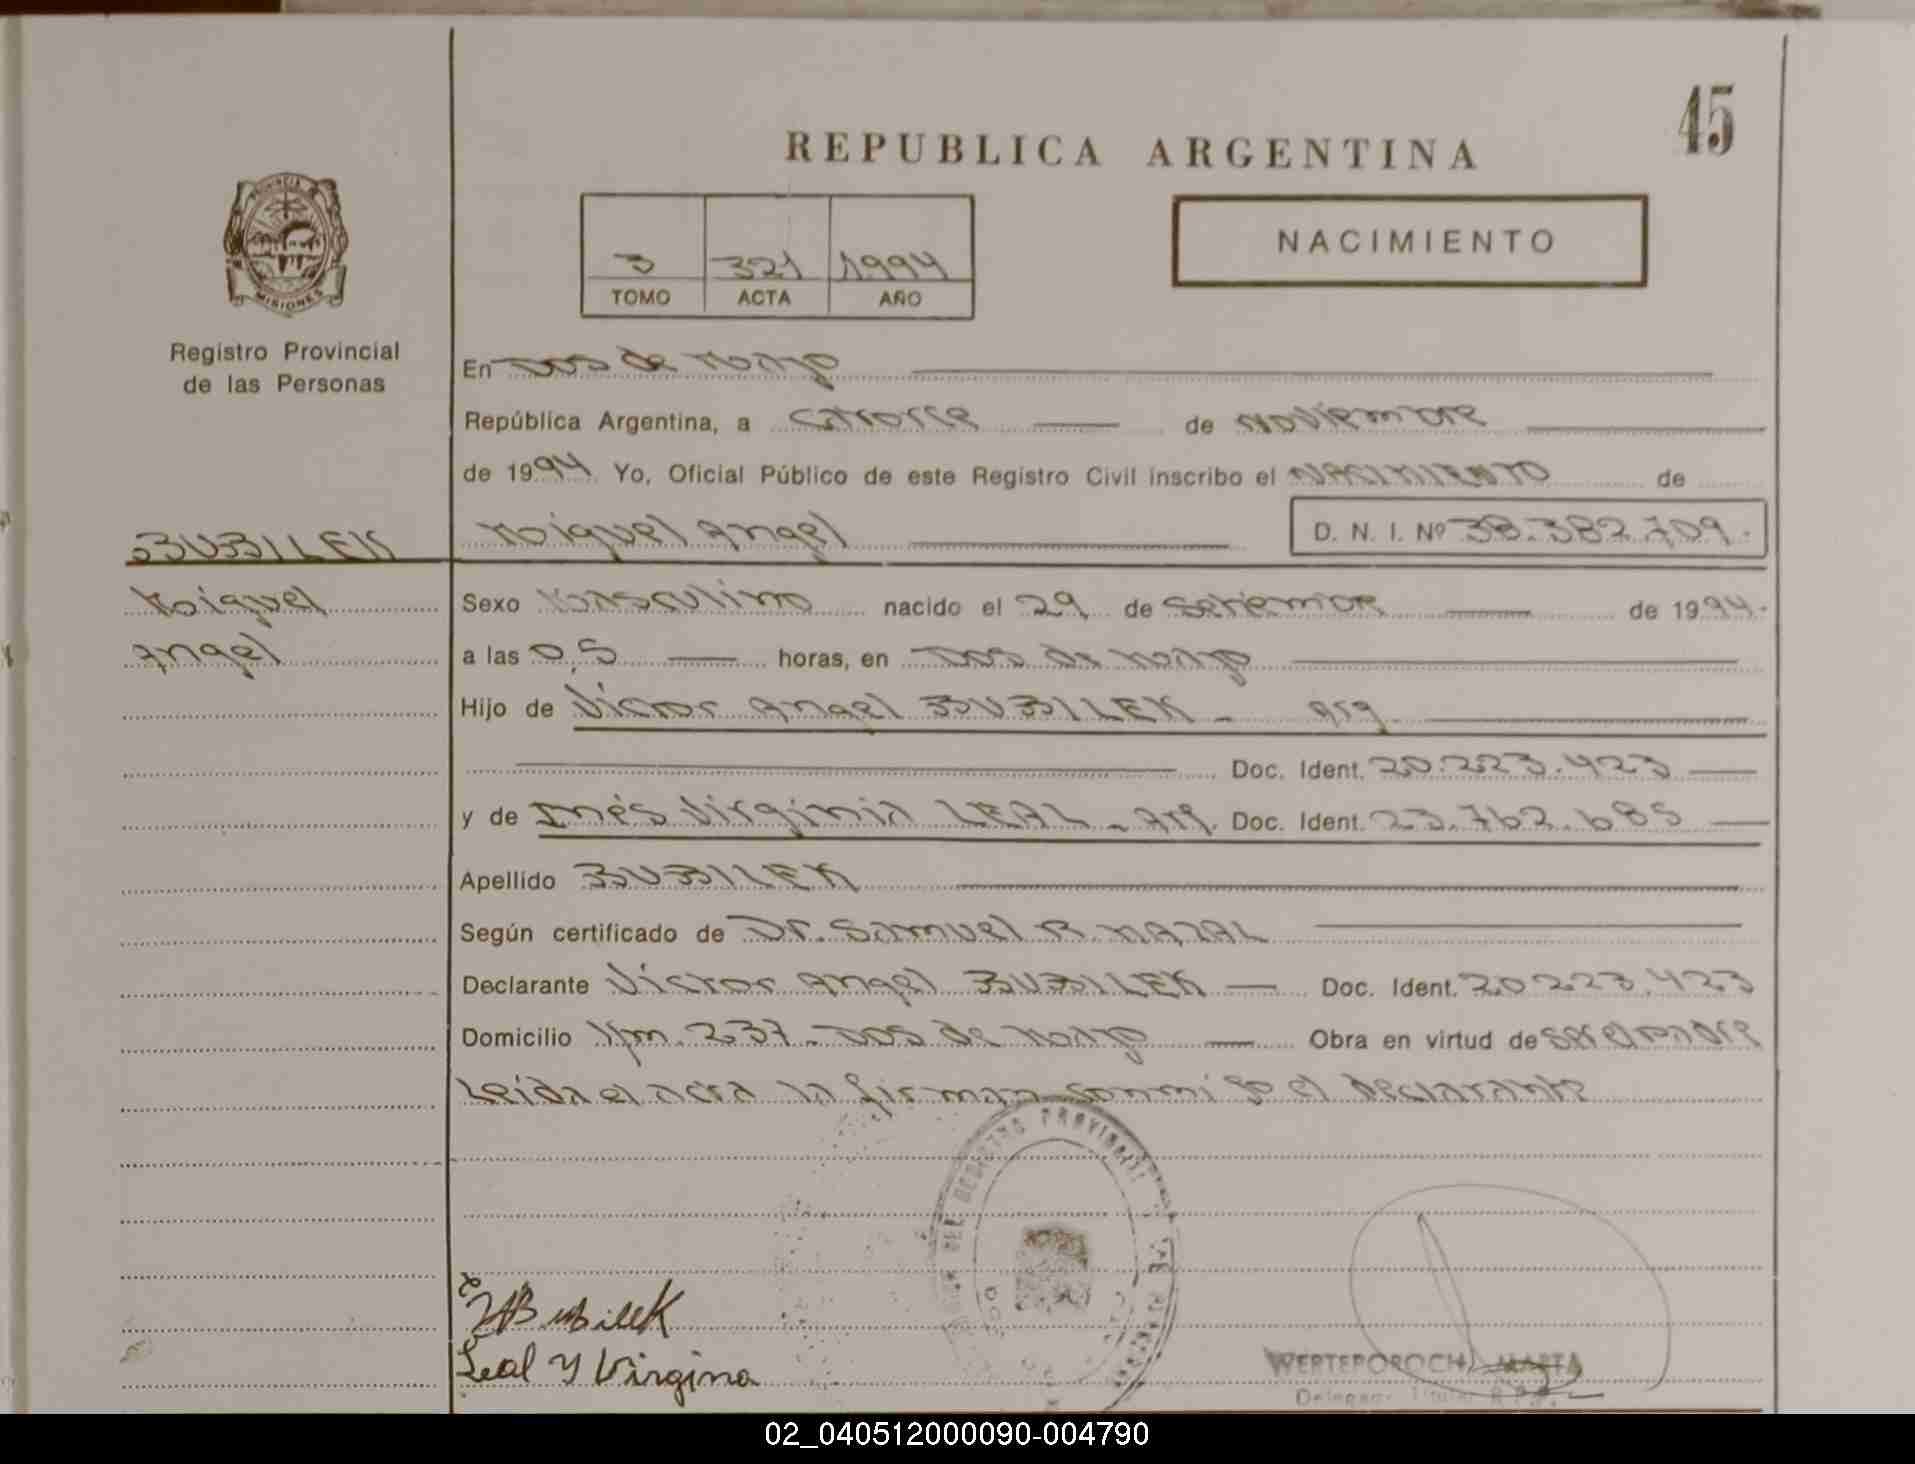 45
REPUBLICA ARGENTINA
PROVINCIA DE
MISIONES
Registro Provincial
de las Personas
3 321 1994
TOMO ACTA AÑO
NACIMIENTO
En Dos de Mayo
República Argentina, a catorce de noviembre
de 1994 Yo, Oficial Público de este Registro Civil inscribo el NACIMIENTO de
BUBILEK Miguel Angel D. N. I. Nº 38.382.709.
Miguel Sexo Masculino nacido el 29 de setiembre de 1994.
Angel a las 0,5 horas, en Dos de Mayo
Hijo de Víctor Angel BUBILEK - arg.
Doc. Ident. 20.223.423
y de Inés Virginia LEAL - Arg. Doc. Ident. 23.762.685
Apellido BUBILEK
Según certificado de Dr. Samuel R. NAZAL
Declarante Víctor Angel BUBILEK Doc. Ident. 20.223.423
Domicilio Km. 237 - Dos de Mayo Obra en virtud de ser el padre
Leida el acta la firman conmigo el declarante
DEL REGISTRO PROVINCIAL
VABubilek
Leal Y Virgina
WERTEPOROCH MARTA
02_040512000090-004790